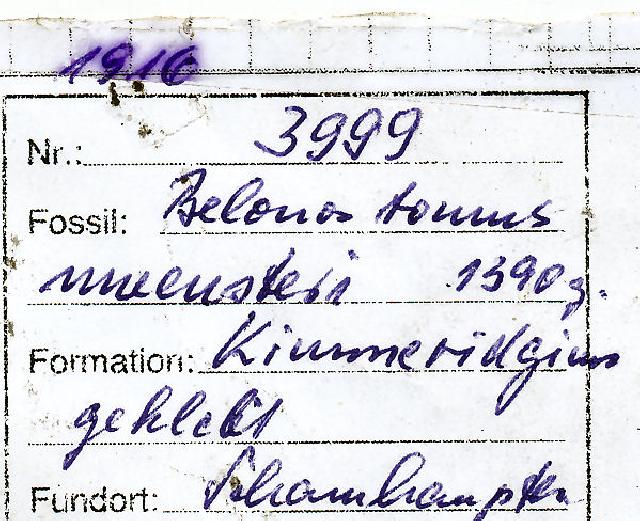 1916
Nr.: 3999
Fossil: Belonostomus
muensteri 1390g.
Formation: Kimmeridgium
geklebt
Fundort: Schamhaupten